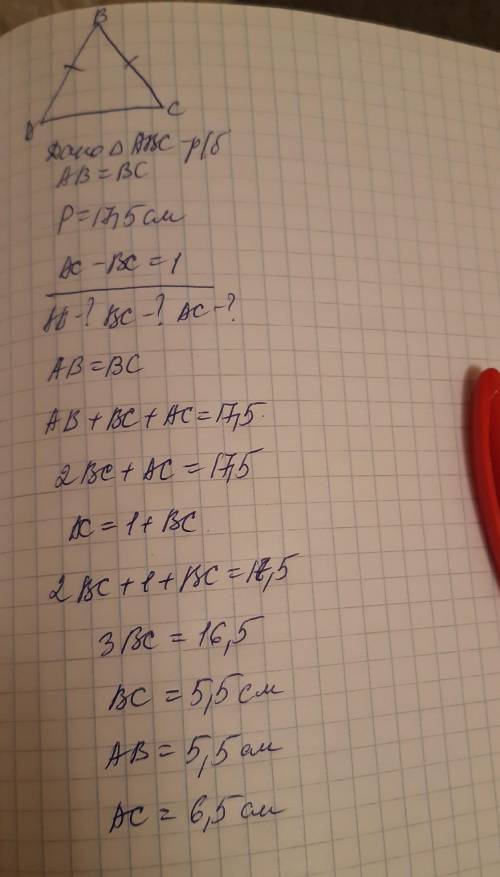 B
A C
Дано Δ ABC - р/б
AB = BC
P = 17,5 см
AC - BC = 1
AB - ? BC - ? AC - ?
AB = BC
AB + BC + AC = 17,5
2BC + AC = 17,5
AC = 1 + BC
2BC + 1 + BC = 17,5
3BC = 16,5
BC = 5,5 см
AB = 5,5 см
AC = 6,5 см